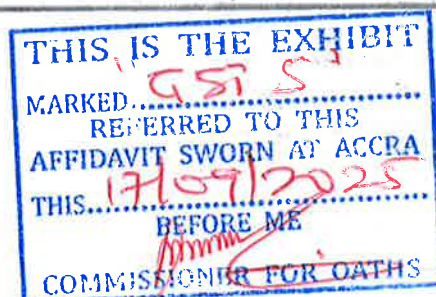 THIS IS THE EXHIBIT
MARKED.. "GST 5"
REFERRED TO THIS
AFFIDAVIT SWORN AT ACCRA
THIS..... 17/09/2025
BEFORE ME
COMMISSIONER FOR OATHS